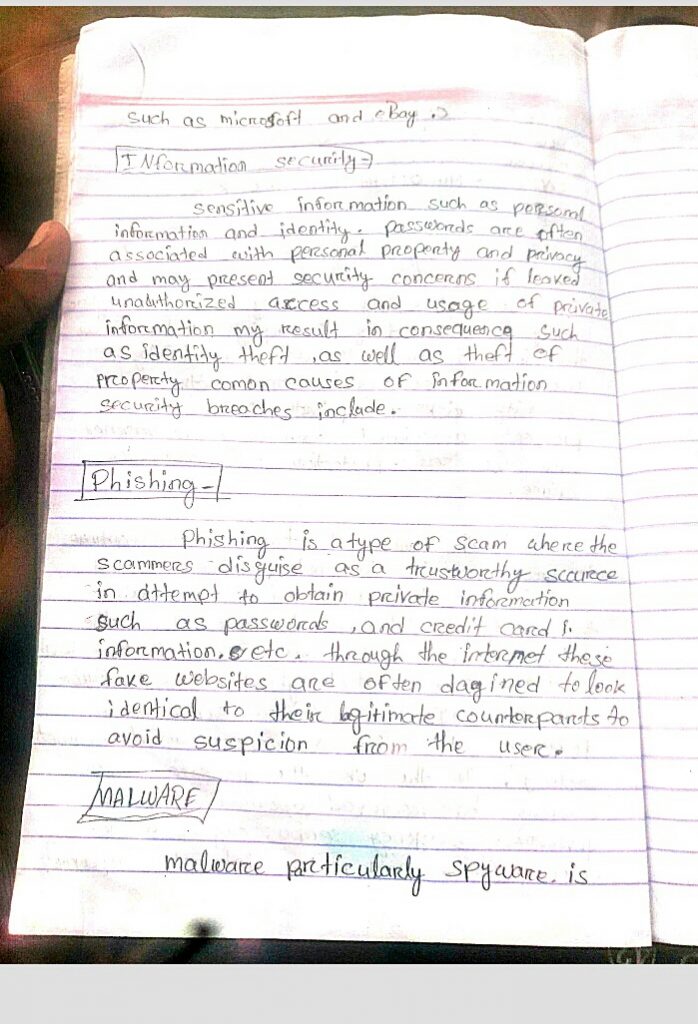 such as microsoft and eBay.
INformation security
sensitive information such as personal
information and identity. passwords are often
associated with personal property and privacy
and may present security concerns if leaked
unauthorized access and usage of private
information my result in consequence such
as identity theft, as well as theft of
property comon causes of information
security breaches include.
Phishing-
Phishing is a type of scam where the
scammers disguise as a trustworthy scource
in attempt to obtain private information
such as passwords, and credit card
information, etc. through the internet these
fake websites are often dagined to look
identical to their legitimate counterparts to
avoid suspicion from the user.
MALWARE
malware particularly spyware is